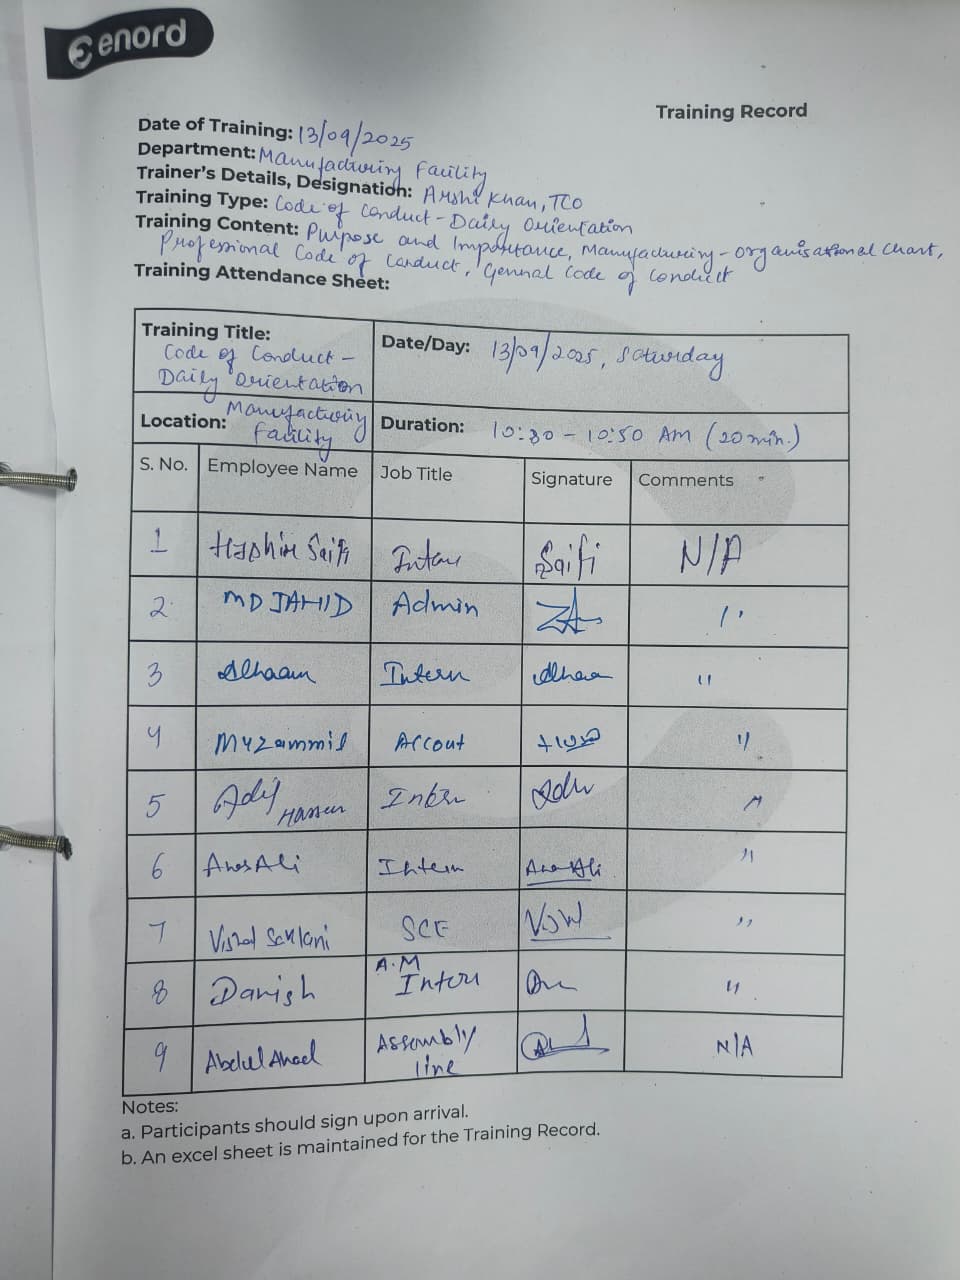 enord
Training Record
Date of Training: 13/09/2025
Department: Manufacturing Facility
Trainer's Details, Designation: Arshi Khan, TCO
Training Type: Code of Conduct - Daily Orientation
Training Content: Purpose and Importance, Manufacturing - Organisational Chart,
Professional Code of Conduct, General Code of Conduct
Training Attendance Sheet:
Training Title: Code of Conduct - Daily Orientation
Date/Day: 13/09/2025, Saturday
Location: Manufacturing Facility
Duration: 10:30 - 10:50 AM (20 min.)
S. No. Employee Name Job Title Signature Comments
1 Saifi Saifi N/A
2 MD JAHID Admin "
3 Alhaam Intern "
4 Muzammil Accout "
5 Adil Intern "
6 Anas Ali Intern Anas Ali "
7 SCE "
8 Danish A.M Intern "
9 Abdul Ahad Assembly line N/A
Notes:
a. Participants should sign upon arrival.
b. An excel sheet is maintained for the Training Record.